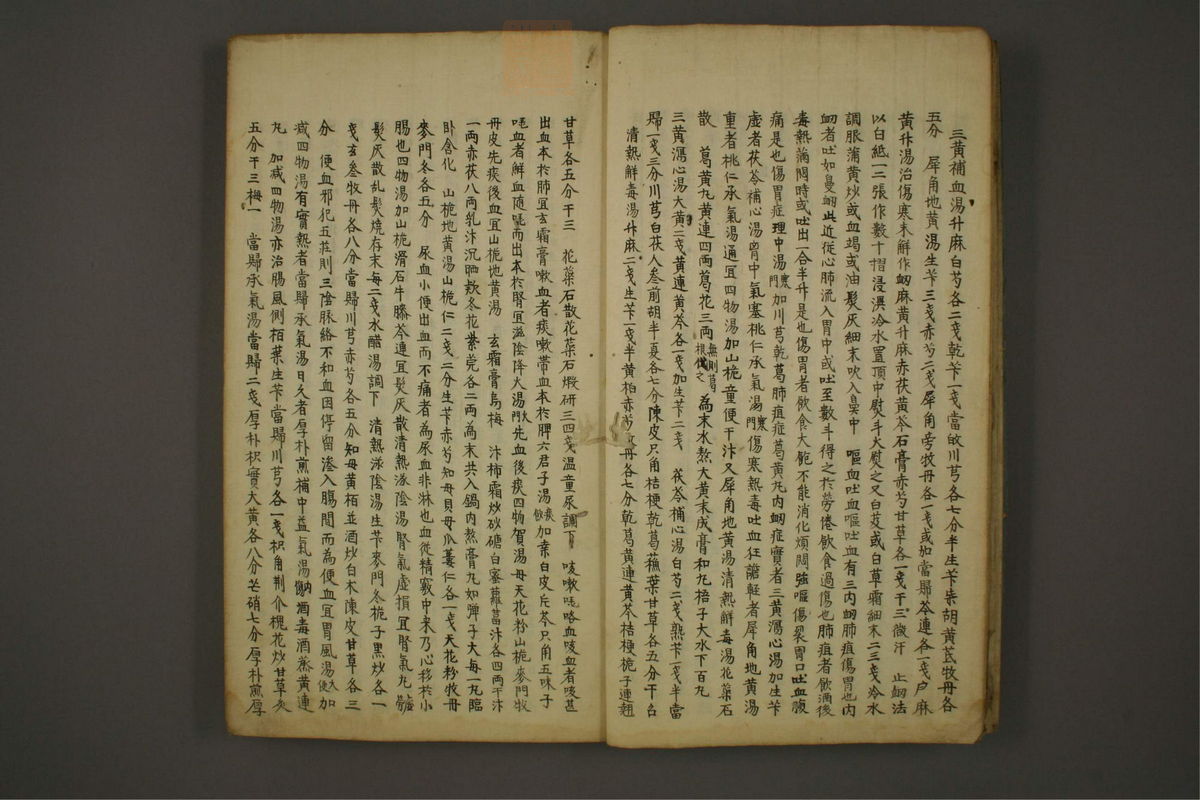 三黃補血湯升麻白芍各二戔乾芐一戔當㱕川芎各七分半生芐柴胡黃芪牧丹各
五分 犀角地黃湯生芐三戔赤芍二戔犀角旁牧丹各一戔或加當歸芩連各一戔 麻
黃升湯治傷寒未解作衄麻黃升麻赤茯黃芩石膏赤芍甘草各一戔干三微汗 止衄法
以白紙一二張作數十摺浸濕冷水置頂中熨斗火熨之又白芨或白草霜細末二三戔冷水
調服蒲黃炒或血竭或油髮灰細末吹入鼻中 嘔血吐血嘔吐血有三內衄肺疽傷胃也內
衄者吐如鼻衄此近從心肺流入胃中或吐至數斗得之於勞倦飮食過傷也肺疽者飮酒後
毒熱滿悶時或吐出一合半升是也傷胃者飮食大飽不能消化煩悶強嘔傷裂胃口吐血腹
痛是也傷胃症理中湯寒門加川芎乾葛肺疽症葛黃丸內衄症實者三黃瀉心湯加生芐
虛者茯苓補心湯胷中氣塞桃仁承氣湯寒門傷寒熱毒吐血狂譫輕者犀角地黃湯
重者桃仁承氣湯通宜四物湯加山梔童便干汁又犀角地黃湯淸熱觧毒湯花蘂石
散 葛黃丸黃連四両葛花三両無則葛根代之為末水熬大黃末成膏和丸梧子大水下百丸
三黃瀉心湯大黃二戔黃連黃芩各一戔加生芐二戔 茯苓補心湯白芍二戔熟芐一戔半當
㱕一戔三分川芎白茯人參前胡半夏各七分陳皮只角桔梗乾葛蘇葉甘草各五分干召
淸熱觧毒湯升麻二戔生芐一戔半黃柏赤芍牧丹各七分乾葛黃連黃芩桔梗梔子連翹
甘草各五分干三 花蘂石散花蘂石煅研三四戔溫童尿調下 咳嗽咯血咳血者咳甚
出血本於肺宜玄霜膏嗽血者痰嗽帶血本於脾六君子湯痰飮加桒白皮片芩只角五味子
咯血者鮮血隨咯而出本於腎宜滋陰降火湯火門先血後痰四物湯貝母天花粉山梔麥門牧
丹皮先痰後血宜山梔地黃湯 玄霜膏烏梅 汁柿霜炒砂磄白蜜蘿葍汁各四両干汁
一両赤茯八両乳汁沉晒欵冬花紫菀各二両為末共入鍋內熬膏丸如彈子大每一丸臨
卧含化 山梔地黃湯山梔仁二戔二分生芐赤芍知母貝母瓜蔞仁各一戔天花粉牧丹
麥門冬各五分 尿血小便出血而不痛者為尿血非淋也血從精竅中来乃心移於小
膓也四物湯加山梔滑石牛膝芩連宜髮灰散淸熱滋陰湯腎氣虛損宜腎氣丸
髮灰散乱髮燒存末每二戔水醋湯調下 淸熱滋陰湯生芐麥門冬梔子黑炒各一
戔玄參牧丹各八分當㱕川芎赤芍各五分知母黃栢並酒炒白朮陳皮甘草各三
分 便血邪犯五莊則三陰脉絡不和血因停留滲入膓間而為便血宜胃風湯大便加
减四物湯有實熱者當㱕承氣湯日久者厚朴煎補中益氣湯 酒毒酒蒸黃連
丸 加减四物湯亦治膓風側栢葉生芐當㱕川芎各一戔枳角荆介槐花炒甘草灸
五分干三梅一 當㱕承氣湯當㱕二戔厚朴枳實大黃各八分芒硝七分厚朴煎厚